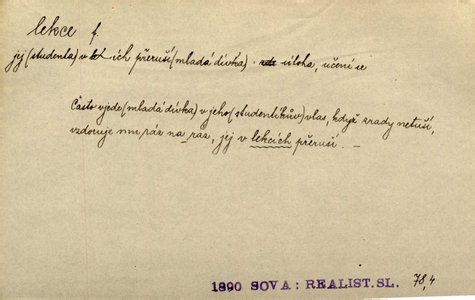 lekce f.
jej (studenta) v lekcích přeruší (mladá dívka) . úloha, učení se
Často vjede (mladá dívka) v jeho (studentíkův) vlas, když zrady netuší,
vzdoruje mu ráz na ráz, jej v lekcích přeruší. —
1890 SOVA: REALIST. SL. 78,4